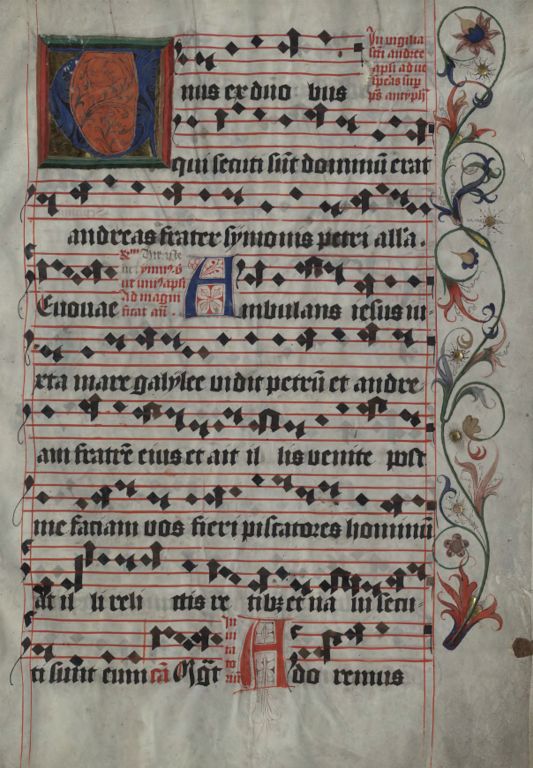 In vigilia
sci andree
Unus ex duo bus
qui secuti sūt dominū erat
andreas frater symonis petri alla.
ymnus
ad magni
ficat añ.
Euouae Ambulans iesus iu-
xta mare galylee vidit petrū et andre
am fratrē eius et ait il lis venite post
me faciam vos fieri piscatores hominū
At il li reli ctis re tibꝫ et na ui secu-
ti sunt eum Adoremus